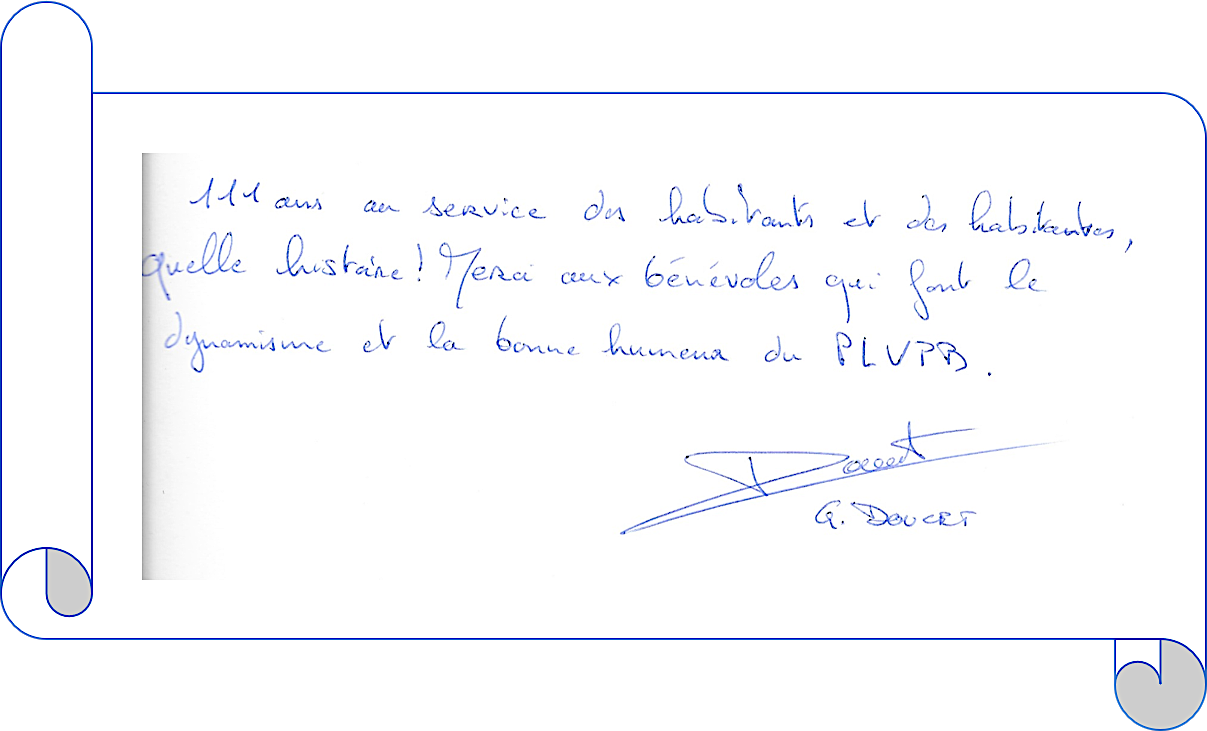 111 ans au service des habitants et des habitantes,
quelle histoire ! Merci aux bénévoles qui font le
dynamisme et la bonne humeur du PLVPB.
Doucet
G. DOUCET